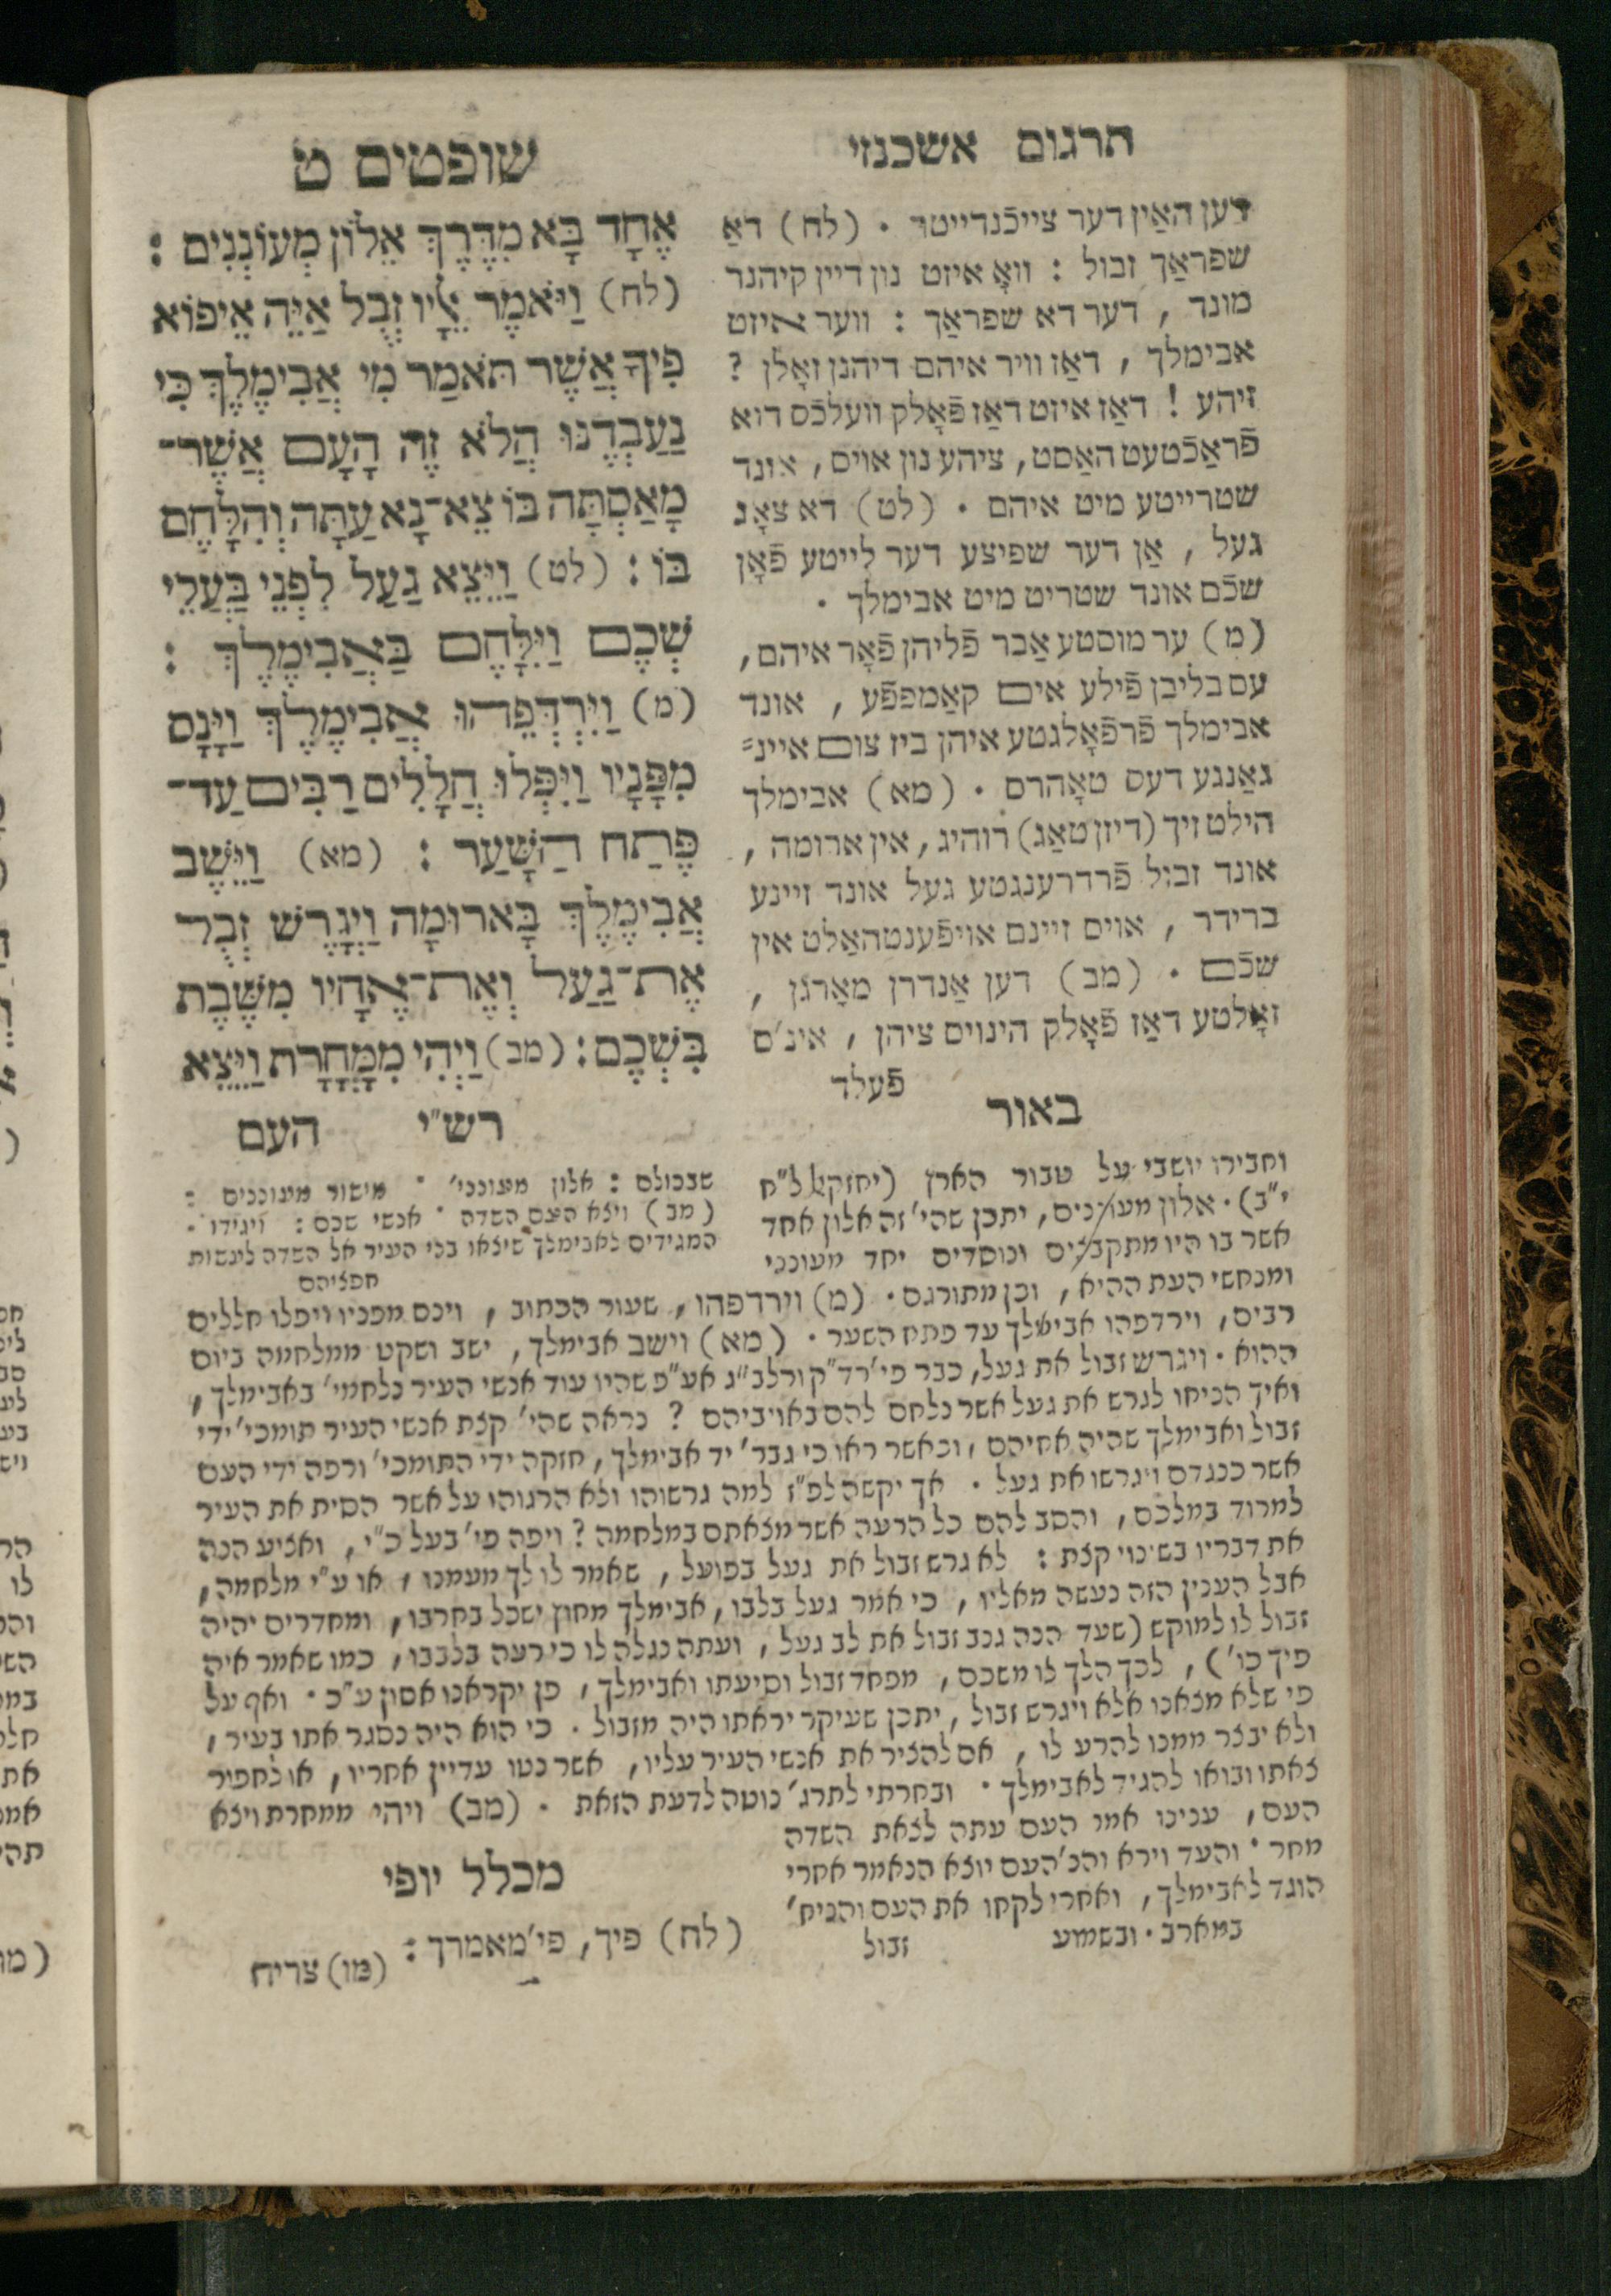 תרגום אשכנזי
דען האַין דער צייכֿנדייטר . (לח) דאַ
שפראַך זבול : וואָ איזט נון דיין קיהנר
מונד , דער דא שפראַך : ווער איזט
אבימלך , דאַז וויר איהם דיהנן זאָלן ?
זיהע ! דאַז איזט דאַז פֿאָלק וועלכֿס דוא
פֿראַכֿטעט האַסט, ציהע נון אויס, אונד
שטרייטע מיט איהם . (לט) דא צאָג
געל , אַן דער שפיצע דער לייטע פֿאָן
שכֿם אונד שטריט מיט אבימלך .
(מ) ער מוסטע אַבר פֿליהן פֿאָר איהם,
עס בליבן פֿילע אים קאַמפפֿע , אונד
אבימלך פֿרפֿאָלגטע איהן ביז צום איינ=
גאַנגע דעס טאָהרס . (מא) אבימלך
הילט זיך (דיזן טאַג) רוהיג, אין ארומה ,
אונד זבול פֿרדרענגטע געל אונד זיינע
ברידר , אויס זיינם אויפֿענטהאַלט אין
שכֿם . (מב) דען אַנדרן מאָרגן ,
זאָלטע דאַז פֿאָלק הינויס ציהן , אינ'ס
פֿעלד
שופטים ט
אֶחָד בָּא מִדֶּרֶךְ אֵלוֹן מְעוֹנְנִים :
(לח) וַיֹּאמֶר אֵלָיו זְבֻל אַיֵּה אֵיפוֹא
פִיךָ אֲשֶׁר תֹּאמַר מִי אֲבִימֶלֶךְ כִּי
נַעַבְדֶנּוּ הֲלֹא זֶה הָעָם אֲשֶׁר־
מָאַסְתָּה בּוֹ צֵא־נָא עַתָּה וְהִלָּחֶם
בּוֹ : (לט) וַיֵּצֵא גַעַל לִפְנֵי בַּעֲלֵי
שְׁכֶם וַיִּלָּחֶם בַּאֲבִימֶלֶךְ :
(מ) וַיִּרְדְּפֵהוּ אֲבִימֶלֶךְ וַיָּנָס
מִפָּנָיו וַיִּפְּלוּ חֲלָלִים רַבִּים עַד־
פֶּתַח הַשָּׁעַר : (מא) וַיֵּשֶׁב
אֲבִימֶלֶךְ בָּארוּמָה וַיְגָרֶשׁ זְבֻל
אֶת־גַּעַל וְאֶת־אֶחָיו מִשֶּׁבֶת
בִּשְׁכֶם : (מב) וַיְהִי מִמָּחֳרָת וַיֵּצֵא
העם
באור
וחבירו יושבי על טבור הארץ (יחזקאל ל"ח
י"ב) . אלון מעוננים, יתכן שהי' זה אלון אחד
אשר בו היו מתקבצים ונוסדים יחד מעונני
רש"י
שבכולם : אלון מעוננים . מישור מעוננים :
(מב) ויצא העם השדה . אנשי שכם : ויגידו .
המגידים לאבימלך שיצאו בני העיר אל השדה לעשות
חפציהם
ומנחשי העת ההיא, וכן מתורגם . (מ) וירדפהו, שעור הכתוב, וינס מפניו ויפלו חללים
רבים, וירדפהו אבימלך עד פתח השער . (מא) וישב אבימלך, ישב ושקט ממלחמה ביום
ההוא . ויגרש זבול את געל, כבר פי' רד"ק ורלב"ג אע"פ שהיו עוד אנשי העיר נלחמי' באבימלך,
ואיך הניחו לגרש את געל אשר נלחם להם באויביהם ? נראה שהי' קצת אנשי העיר תומכי' ידי
זבול ואבימלך שהיה אחיהם, וכאשר ראו כי גבר' יד אבימלך, חזקה ידי התומכי' ורפה ידי העם
אשר כנגדם ויגרשו את געל . אך יקשה לפ"ז למה גרשוהו ולא הרגוהו על אשר הסית את העיר
למרוד במלכם, והסב להם כל הרעה אשר מצאתם במלחמה ? ויפה פי' בעל כ"י, ואציע הנה
את דבריו בשינוי קצת : לא גרש זבול את געל בפועל, שאמר לו לך מעמנו, או ע"י מלחמה,
אבל הענין הזה נעשה מאליו, כי אמר געל בלבו, אבימלך מחוץ ישכל בחרבו, ומחדרים יהיה
זבול לו למוקש (שעד הנה גנב זבול את לב געל, ועתה נגלה לו כי רעה בלבבו, כמו שאמר איה
פיך כו'), לכך הלך לו משכם, מפחד זבול וסיעתו ואבימלך, פן יקראנו אסון ע"כ . ואף על
פי שלא מצאנו אלא ויגרש זבול, יתכן שעיקר יראתו היה מזבול . כי הוא היה נסגר אתו בעיר,
ולא יבצר ממנו להרע לו, אם להציר את אנשי העיר עליו, אשר נטו עדיין אחריו, או לחפור
צאתו ובואו להגיד לאבימלך . ובחרתי לתרג' נוטה לדעת הזאת . (מב) ויהי ממחרת ויצא
העם, ענינו אמר העם עתה לצאת השדה
מחר . והעד וירא והנ' העם יוצא הנאמר אחרי
הוגד לאבימלך, ואחרי לקחו את העם והניח'
במארב . ובשמוע זבול
מכלל יופי
(לח) פיך, פי' מאמרך :
(מו) צריח